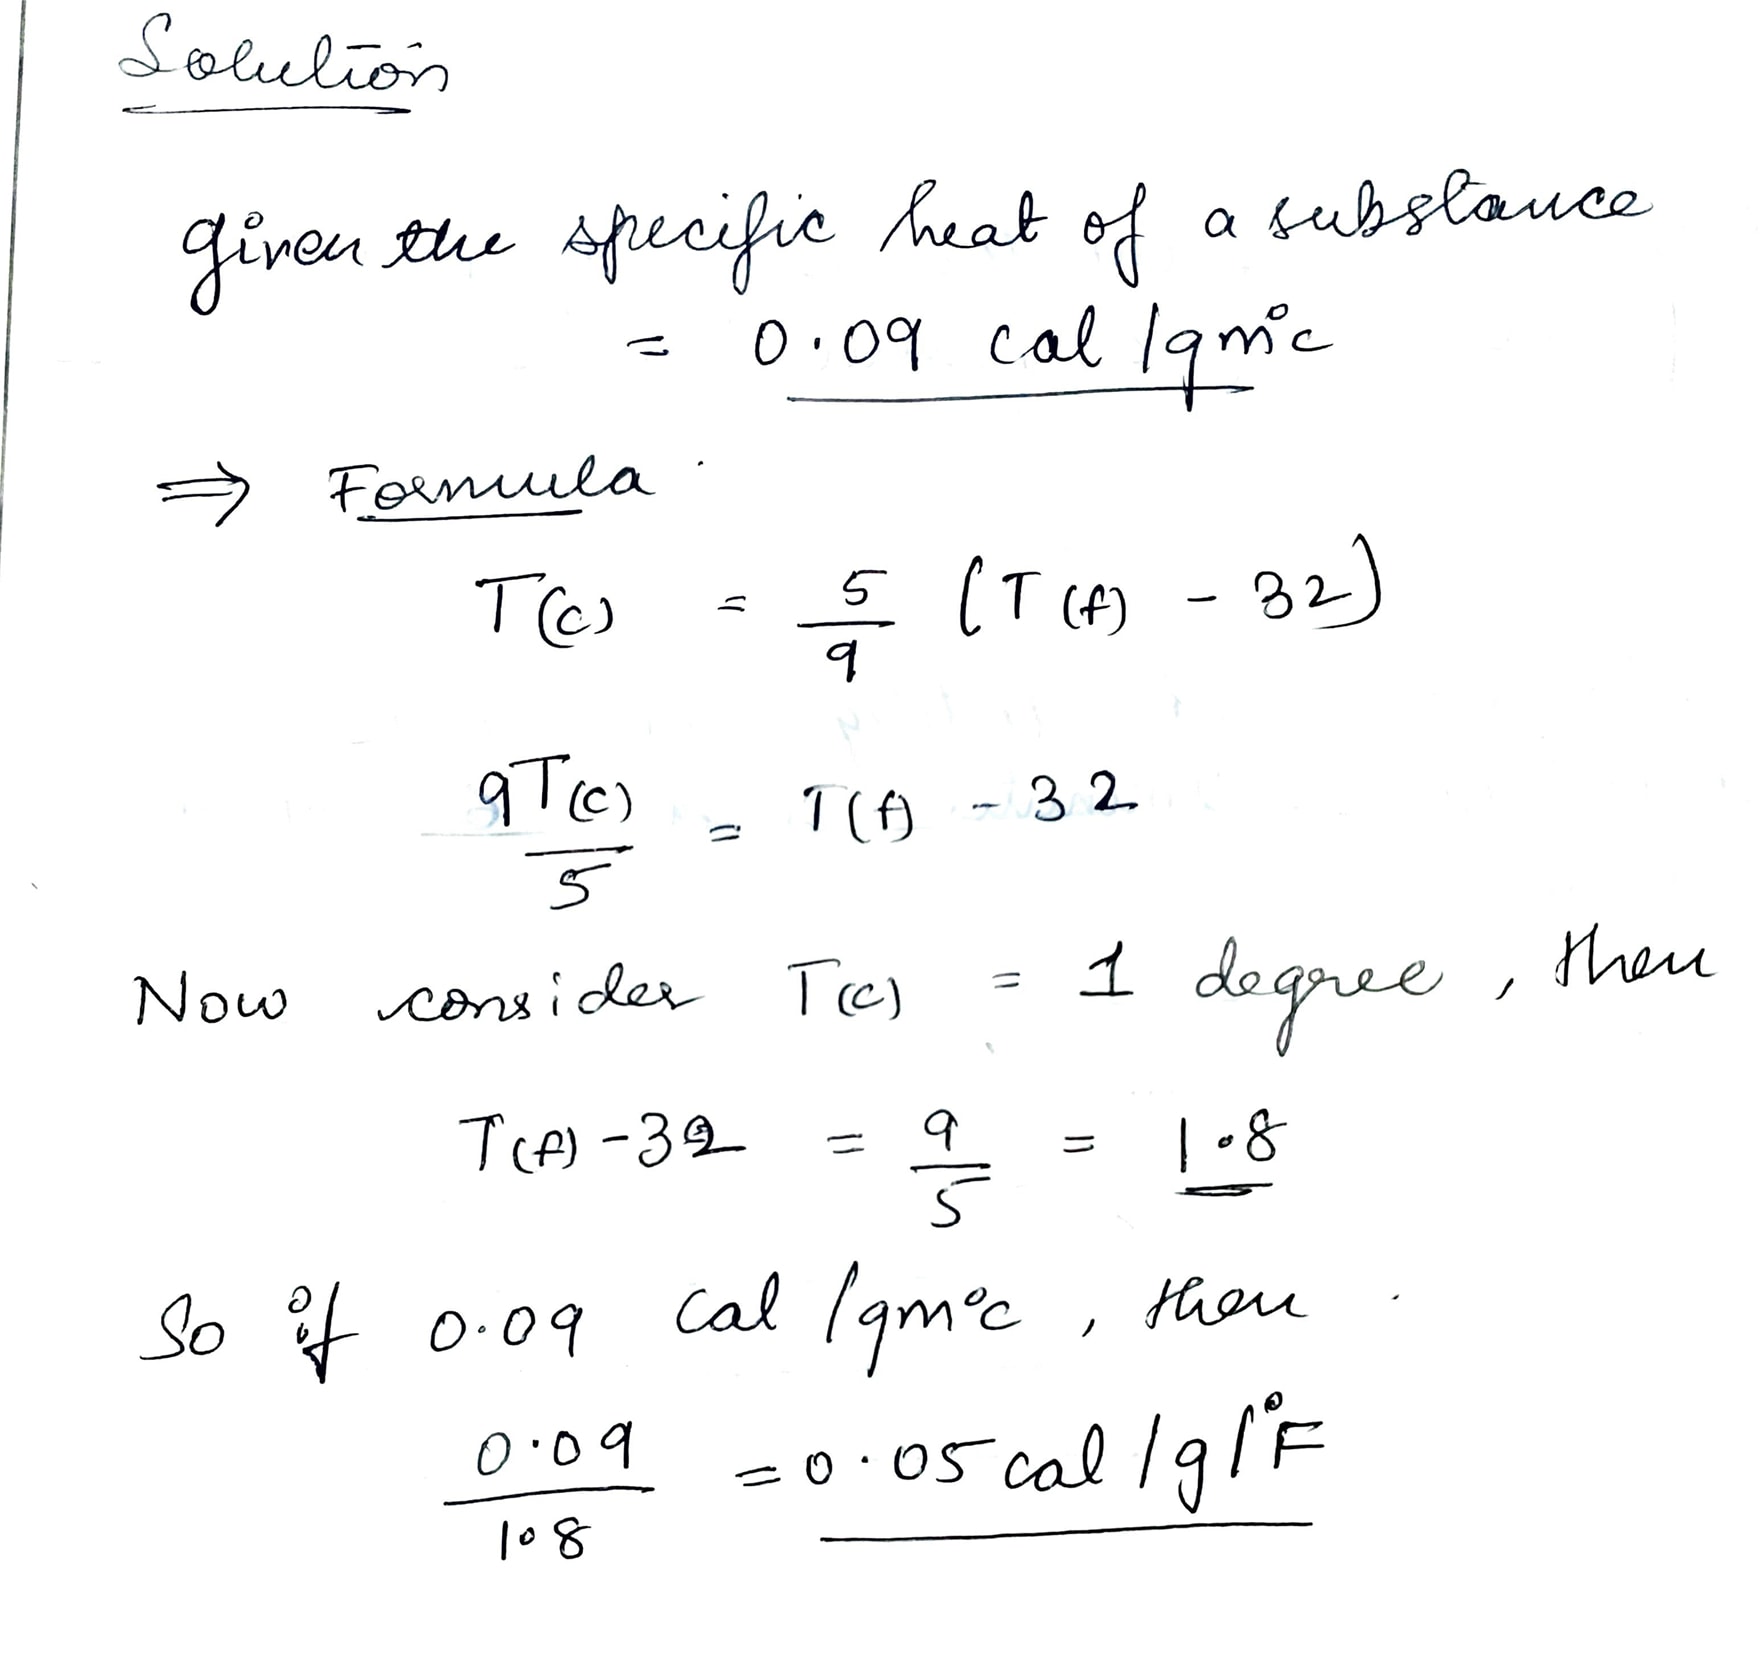 Solution
given the specific heat of a substance
= 0.09 cal /gm°c
⇒ Formula
T(c) = 5/9 (T(f) - 32)
9T(c)/5 = T(f) - 32
Now consider T(c) = 1 degree, then
T(f) - 32 = 9/5 = 1.8
So if 0.09 cal /gm°c, then
0.09/1.8 = 0.05 cal /g/°F